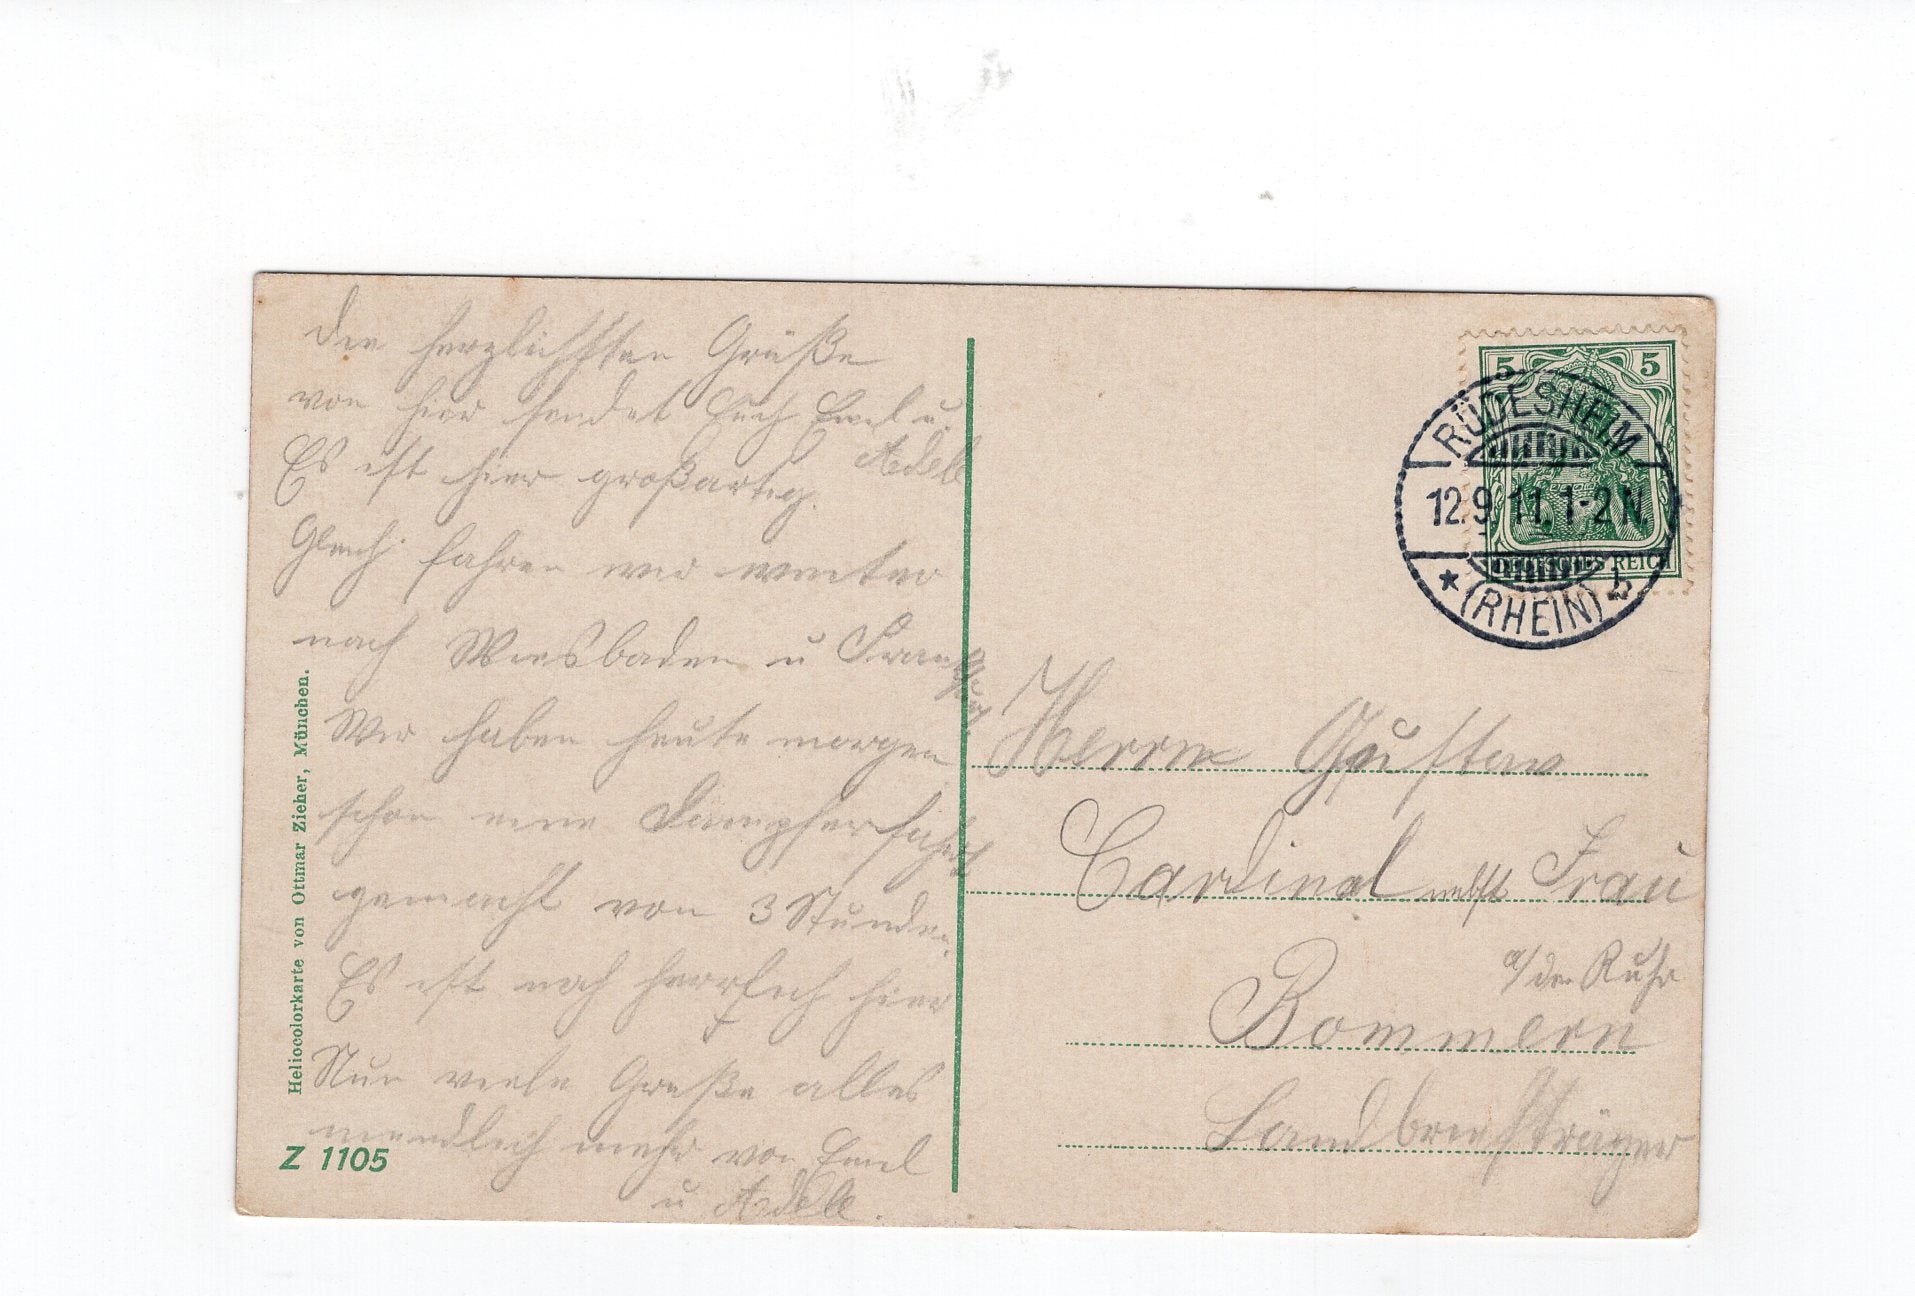 Die herzlichsten Grüße
von hier sendet Euch Emil u.
Adele
Es ist hier großartig.
Gleich fahren wir weiter
nach Wiesbaden u Frankfurt.
Wir haben heute morgen
schon eine Dampferfahrt
gemacht von 3 Stunden.
Es ist noch herrlich hier
Nun viele Grüße alles
mündlich mehr von Emil
u Adele.
Heliocolorkarte von Ottmar Zieher, München.
Z 1105
5 5
DEUTSCHES REICH
RÜDESHEIM
12.9.11.1-2N
* (RHEIN) b
Herrn Gustav
Cardinal nebst Frau
a/der Ruhr
Bommern
Landbriefträger